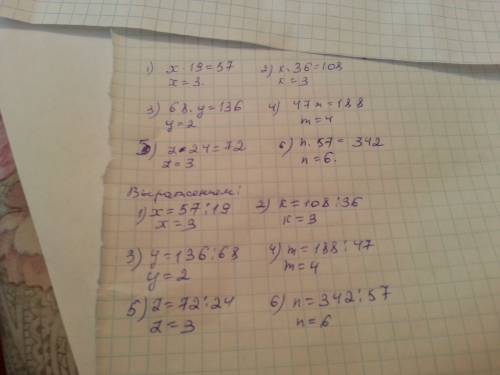 1) x · 19 = 57 2) к · 36 = 108
x = 3. к = 3
3) 68 · y = 136 4) 47 m = 188
y = 2 m = 4
5) z · 24 = 72 6) n · 57 = 342
z = 3 n = 6.
Выражением:
1) x = 57 : 19 2) к = 108 : 36
x = 3 к = 3
3) y = 136 : 68 4) m = 188 : 47
y = 2 m = 4
5) z = 72 : 24 6) n = 342 : 57
z = 3 n = 6